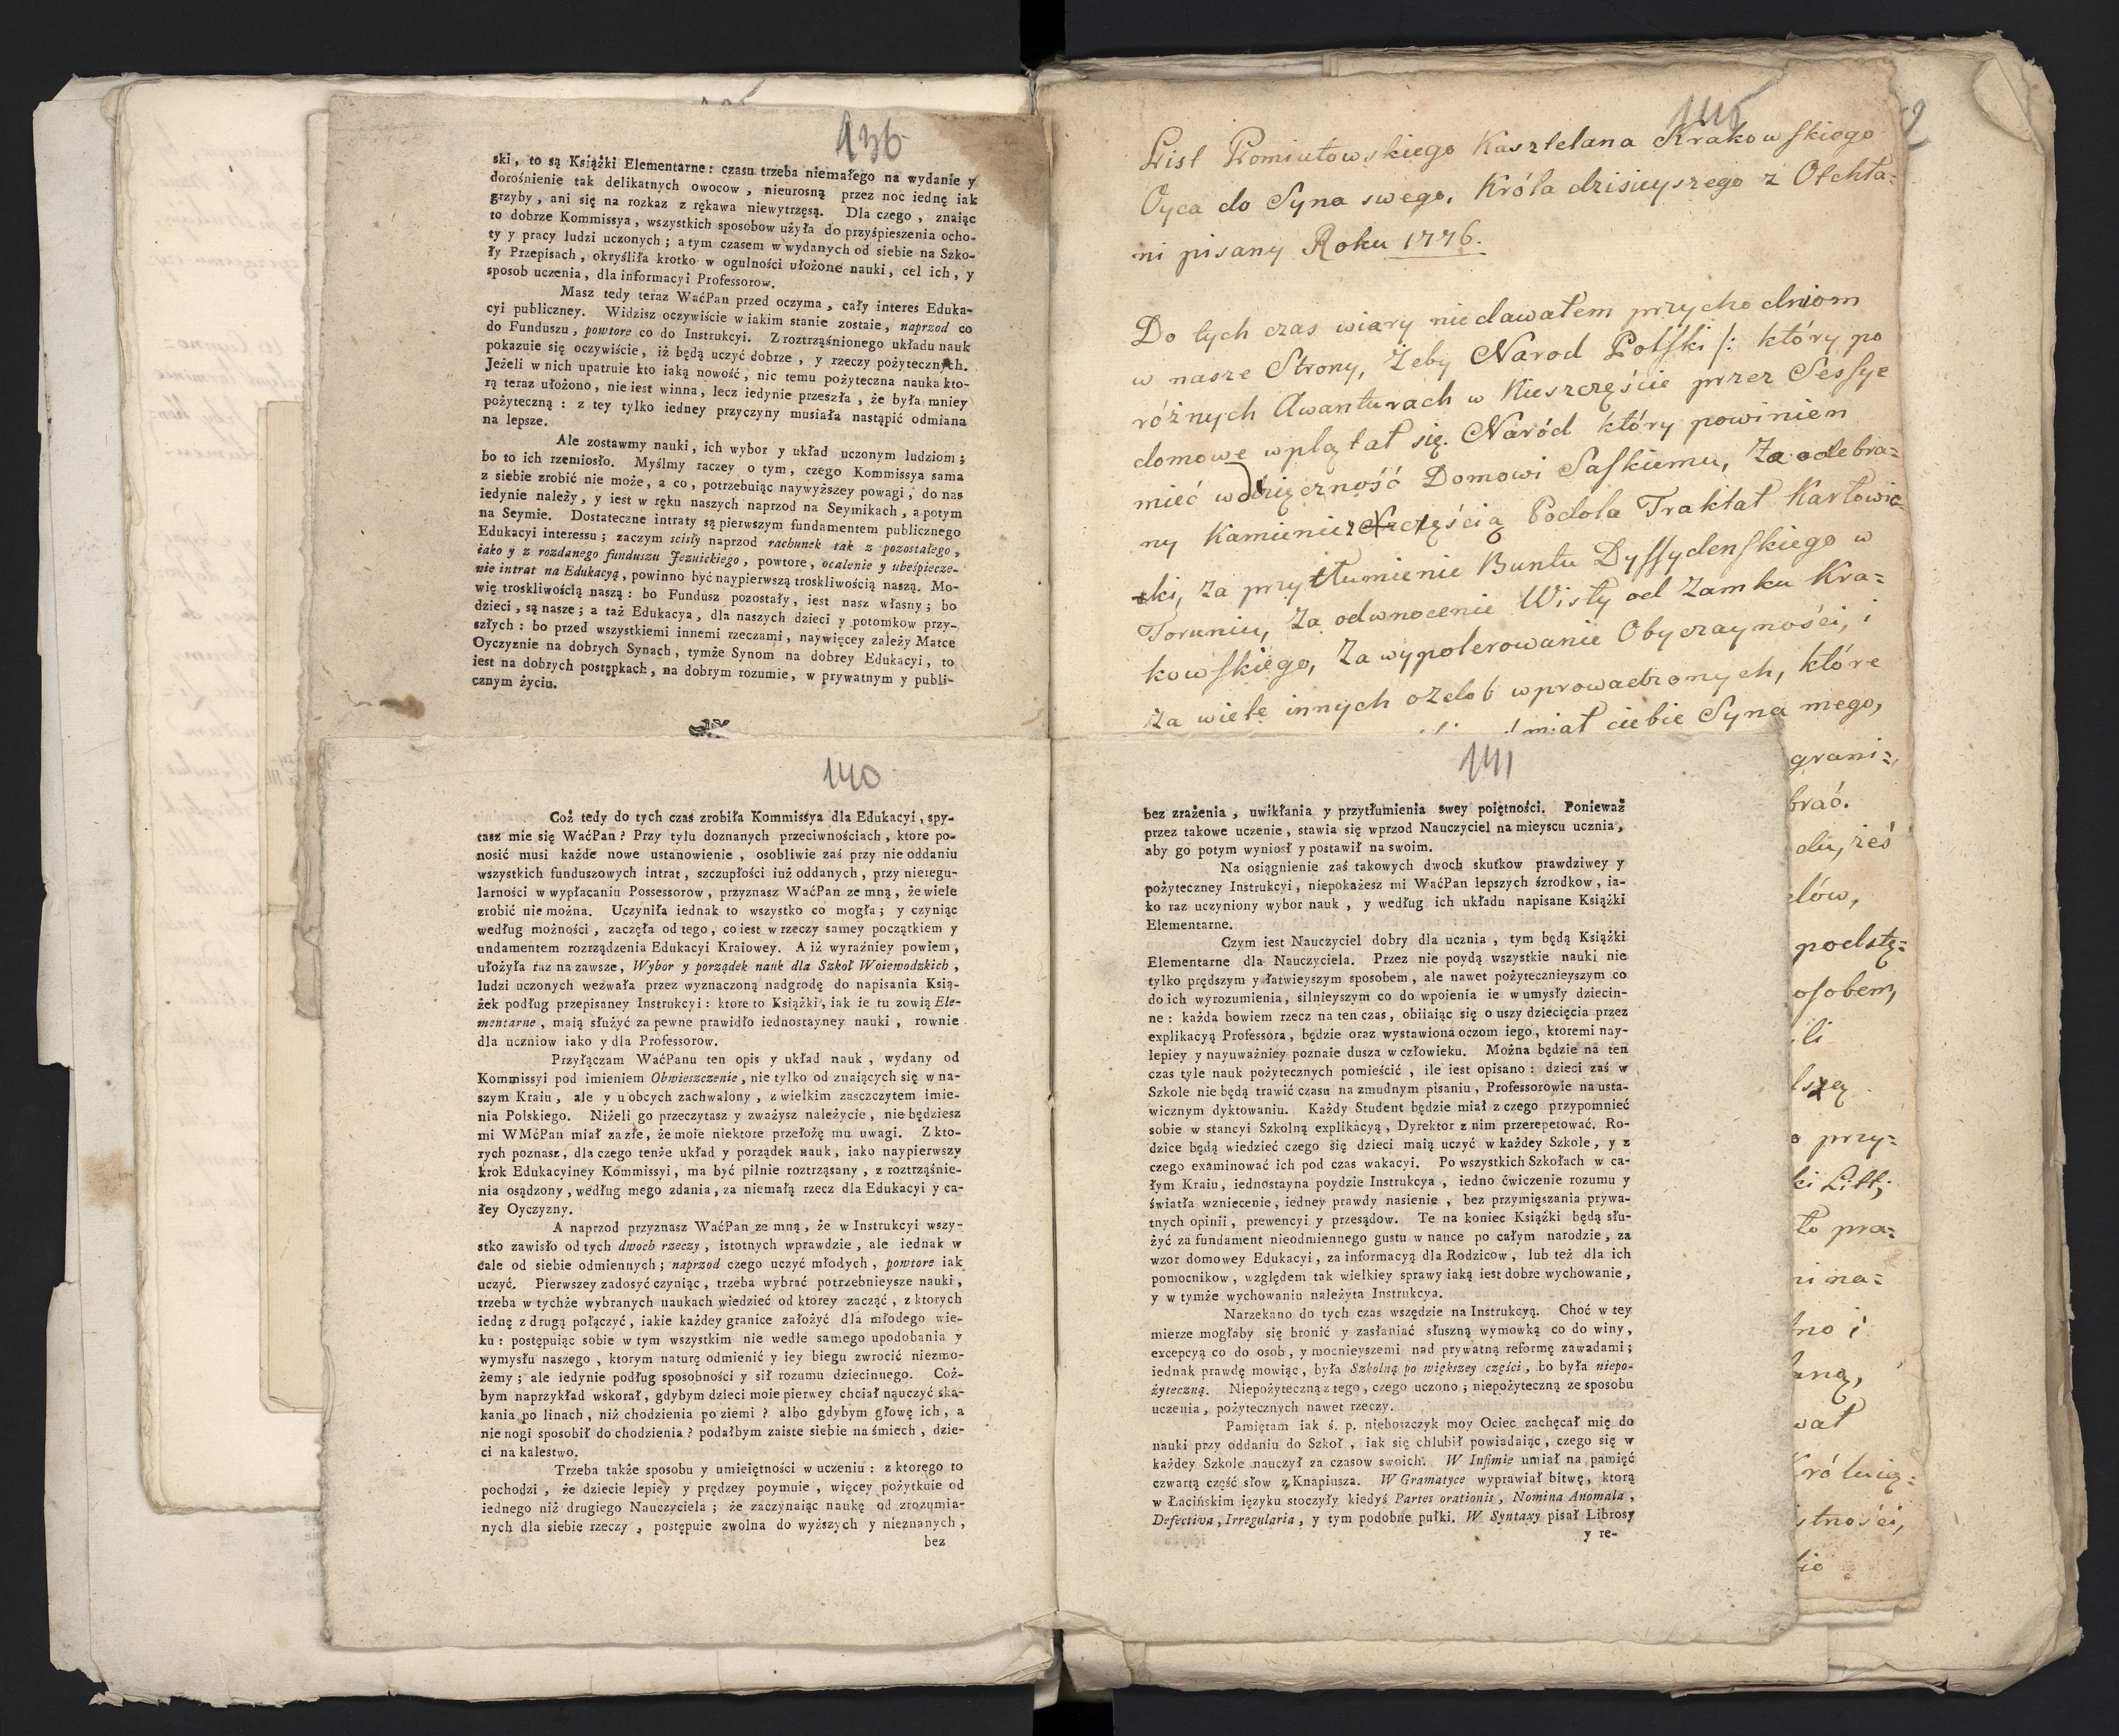 136
ski, to są Książki Elementarne: czasu trzeba niemałego na wydanie y
dorośnienie tak delikatnych owocow, nieurosną przez noc iednę iak
grzyby, ani się na rozkaz z rękawa niewytrzęsą. Dla czego, znaiąc
to dobrze Kommissya, wszystkich sposobow użyła do przyśpieszenia ocho-
ty y pracy ludzi uczonych; a tym czasem w wydanych od siebie na Szko-
ły Przepisach, okryśliła krotko w ogulności ułożone nauki, cel ich, y
sposob uczenia, dla informacyi Professorow.
Masz tedy teraz WaćPan przed oczyma, cały interes Eduka-
cyi publiczney. Widzisz oczywiście w iakim stanie zostaie, naprzod co
do Funduszu, powtore co do Instrukcyi. Z roztrząśnionego układu nauk
pokazuie się oczywiście, iż będą uczyć dobrze, y rzeczy pożytecznych.
Jeżeli w nich upatruie kto iaką nowość, nic temu pożyteczna nauka kto-
rą teraz ułożono, nie iest winna, lecz iedynie przeszła, że była mniey
pożyteczną: z tey tylko iedney przyczyny musiała nastąpić odmiana
na lepsze.
Ale zostawmy nauki, ich wybor y układ uczonym ludziom;
bo to ich rzemiosło. Myślmy raczey o tym, czego Kommissya sama
z siebie zrobić nie może, a co, potrzebuiąc naywyższey powagi, do nas
iedynie należy, y iest w ręku naszych naprzod na Seymikach, a potym
na Seymie. Dostateczne intraty są pierwszym fundamentem publicznego
Edukacyi interessu; zaczym scisły naprzod rachunek tak z pozostałego,
iako y z rozdanego funduszu Jezuickiego, powtore, ocalenie y ubeśpiecze-
nie intrat na Edukacyą, powinno być naypierwszą troskliwością naszą. Mo-
wię troskliwością naszą: bo Fundusz pozostały, iest nasz własny; bo
dzieci, są nasze; a taż Edukacya, dla naszych dzieci y potomkow przy-
szłych: bo przed wszystkiemi innemi rzeczami, naywięcey zależy Matce
Oyczyznie na dobrych Synach, tymże Synom na dobrey Edukacyi, to
iest na dobrych postępkach, na dobrym rozumie, w prywatnym y publi-
cznym życiu.
140
Coż tedy do tych czas zrobiła Kommissya dla Edukacyi, spy-
tasz mie się WaćPan? Przy tylu doznanych przeciwnościach, ktore po-
nosić musi każde nowe ustanowienie, osobliwie zaś przy nie oddaniu
wszystkich funduszowych intrat, szczupłości iuż oddanych, przy nieregu-
larności w wypłacaniu Possessorow, przyznasz WaćPan ze mną, że wiele
zrobić nie można. Uczyniła iednak to wszystko co mogła; y czyniąc
według możności, zaczęła od tego, co iest w rzeczy samey początkiem y
undamentem rozrządzenia Edukacyi Kraiowey. A iż wyraźniey powiem,
ułożyła raz na zawsze, Wybor y porządek nauk dla Szkoł Woiewodzkich,
ludzi uczonych wezwała przez wyznaczoną nadgrodę do napisania Ksią-
żek podług przepisaney Instrukcyi: ktore to Książki, iak ie tu zowią Ele-
mentarne, maią służyć za pewne prawidło iednostayney nauki, rownie
dla uczniow iako y dla Professorow.
Przyłączam WaćPanu ten opis y układ nauk, wydany od
Kommissyi pod imieniem Obwieszczenie, nie tylko od znaiących się w na-
szym Kraiu, ale y u obcych zachwalony, z wielkim zasczczytem imie-
nia Polskiego. Niżeli go przeczytasz y zważysz należycie, nie będziesz
mi WMćPan miał za złe, że moie niektore przełożę mu uwagi. Z kto-
rych poznasz, dla czego tenże układ y porządek nauk, iako naypierwszy
krok Edukacyiney Kommissyi, ma być pilnie roztrząsany, z roztrząśnie-
nia osądzony, według mego zdania, za niemałą rzecz dla Edukacyi y ca-
łey Oyczyzny.
A naprzod przyznasz WaćPan ze mną, że w Instrukcyi wszy-
stko zawisło od tych dwoch rzeczy, istotnych wprawdzie, ale iednak w
cale od siebie odmiennych; naprzod czego uczyć młodych, powtore iak
uczyć. Pierwszey zadosyć czyniąc, trzeba wybrać potrzebnieysze nauki,
trzeba w tychże wybranych naukach wiedzieć od ktorey zacząć, z ktorych
iednę z drugą połączyć, iakie każdey granice założyć dla młodego wie-
ku: postępuiąc sobie w tym wszystkim nie wedle samego upodobania y
wymysłu naszego, ktorym naturę odmienić y iey biegu zwrocić niezmo-
żemy; ale iedynie podług sposobności y sił rozumu dziecinnego. Coż-
bym naprzykład wskorał, gdybym dzieci moie pierwey chciał nauczyć ska-
kania po linach, niż chodzienia po ziemi? albo gdybym głowę ich, a
nie nogi sposobił do chodzienia? podałbym zaiste siebie na śmiech, dzie-
ci na kalestwo.
Trzeba także sposobu y umieiętności w uczeniu: z ktorego to
pochodzi, że dziecie lepiey y prędzey poymuie, więcey pożytkuie od
iednego niż drugiego Nauczyciela; że zaczynaiąc naukę od zrozumia-
nych dla siebie rzeczy, postępuie zwolna do wyższych y nieznanych,
bez
145
2
List Poniatowskiego Kasztelana Krakowskiego
Oyca do Syna swego, Króla dzisieyszego z Otchła=
ni pisany Roku 1776.
Do tych czas wiary nie dawałem przychodniom
w nasze Strony, Żeby Narod Polski /: który po
różnych Awanturach w Nieszczęście przez Sessye
domowe wplątał się. Naród który powinien
mieć wdzięczność Domowi Saskiemu, Za odebra=
ny Kamieniec z częścią Podola Traktat Karłowic=
ki, za przytłumienie Buntu Dyssydenskiego w
Toruniu, Za odwnocenie Wisły od Zamku Kra=
kowskiego, Za wypolerowanie Obyczayności, i
Za wiele innych ozdob wprowadzonych, które
miał ciebie Syna mego,
grani=
brać.
du, żeś
dów,
podstę=
osobem,
ili
lszey
o przy=
ki Litt;
to pra=
ni na=
no i
aną,
wał
Królu ię=
stności,
141
bez zrażenia, uwikłania y przytłumienia swey poiętności. Ponieważ
przez takowe uczenie, stawia się wprzod Nauczyciel na mieyscu ucznia,
aby go potym wyniosł y postawił na swoim.
Na osiągnienie zaś takowych dwoch skutkow prawdziwey y
pożyteczney Instrukcyi, niepokażesz mi WaćPan lepszych śzrodkow, ia-
ko raz uczyniony wybor nauk, y według ich układu napisane Książki
Elementarne.
Czym iest Nauczyciel dobry dla ucznia, tym będą Książki
Elementarne dla Nauczyciela. Przez nie poydą wszystkie nauki nie
tylko prędszym y łatwieyszym sposobem, ale nawet pożytecznieyszym co
do ich wyrozumienia, silnieyszym co do wpoienia ie w umysły dziecin-
ne: każda bowiem rzecz na ten czas, obiiaiąc się o uszy dziecięcia przez
explikacyą Professora, będzie oraz wystawiona oczom iego, ktoremi nay-
lepiey y nayuważniey poznaie dusza w człowieku. Można będzie na ten
czas tyle nauk pożytecznych pomieścić, ile iest opisano: dzieci zaś w
Szkole nie będą trawić czasu na zmudnym pisaniu, Professorowie na usta-
wicznym dyktowaniu. Każdy Student będzie miał z czego przypomnieć
sobie w stancyi Szkolną explikacyą, Dyrektor z nim przerepetować. Ro-
dzice będą wiedzieć czego się dzieci maią uczyć w każdey Szkole, y z
czego examinować ich pod czas wakacyi. Po wszystkich Szkołach w ca-
łym Kraiu, iednostayna poydzie Instrukcya, iedno ćwiczenie rozumu y
światła wzniecenie, iedney prawdy nasienie, bez przymięszania prywa-
tnych opinii, prewencyi y przesądow. Te na koniec Książki będą słu-
żyć za fundament nieodmiennego gustu w nauce po całym narodzie, za
wzor domowey Edukacyi, za informacyą dla Rodzicow, lub też dla ich
pomocnikow, względem tak wielkiey sprawy iaką iest dobre wychowanie,
y w tymże wychowaniu należyta Instrukcya.
Narzekano do tych czas wszędzie na Instrukcyą. Choć w tey
mierze mogłaby się bronić y zasłaniać słuszną wymowką co do winy,
excepcyą co do osob, y mocnieyszemi nad prywatną reformę zawadami;
iednak prawdę mowiąc, była Szkolną po większey części, bo była niepo-
żyteczną. Niepożyteczną z tego, czego uczono; niepożyteczną ze sposobu
uczenia, pożytecznych nawet rzeczy.
Pamiętam iak ś. p. nieboszczyk moy Ociec zachęcał mię do
nauki przy oddaniu do Szkoł, iak się chlubił powiadaiąc, czego się w
każdey Szkole nauczył za czasow swoich. W Infimie umiał na pamięć
czwartą część słow z Knapiusza. W Gramatyce wyprawiał bitwę, ktorą
w Łacińskim ięzyku stoczyły kiedyś Partes orationis, Nomina Anomala,
Defectiva, Irregularia, y tym podobne pułki. W Syntaxy pisał Librosy
y re-